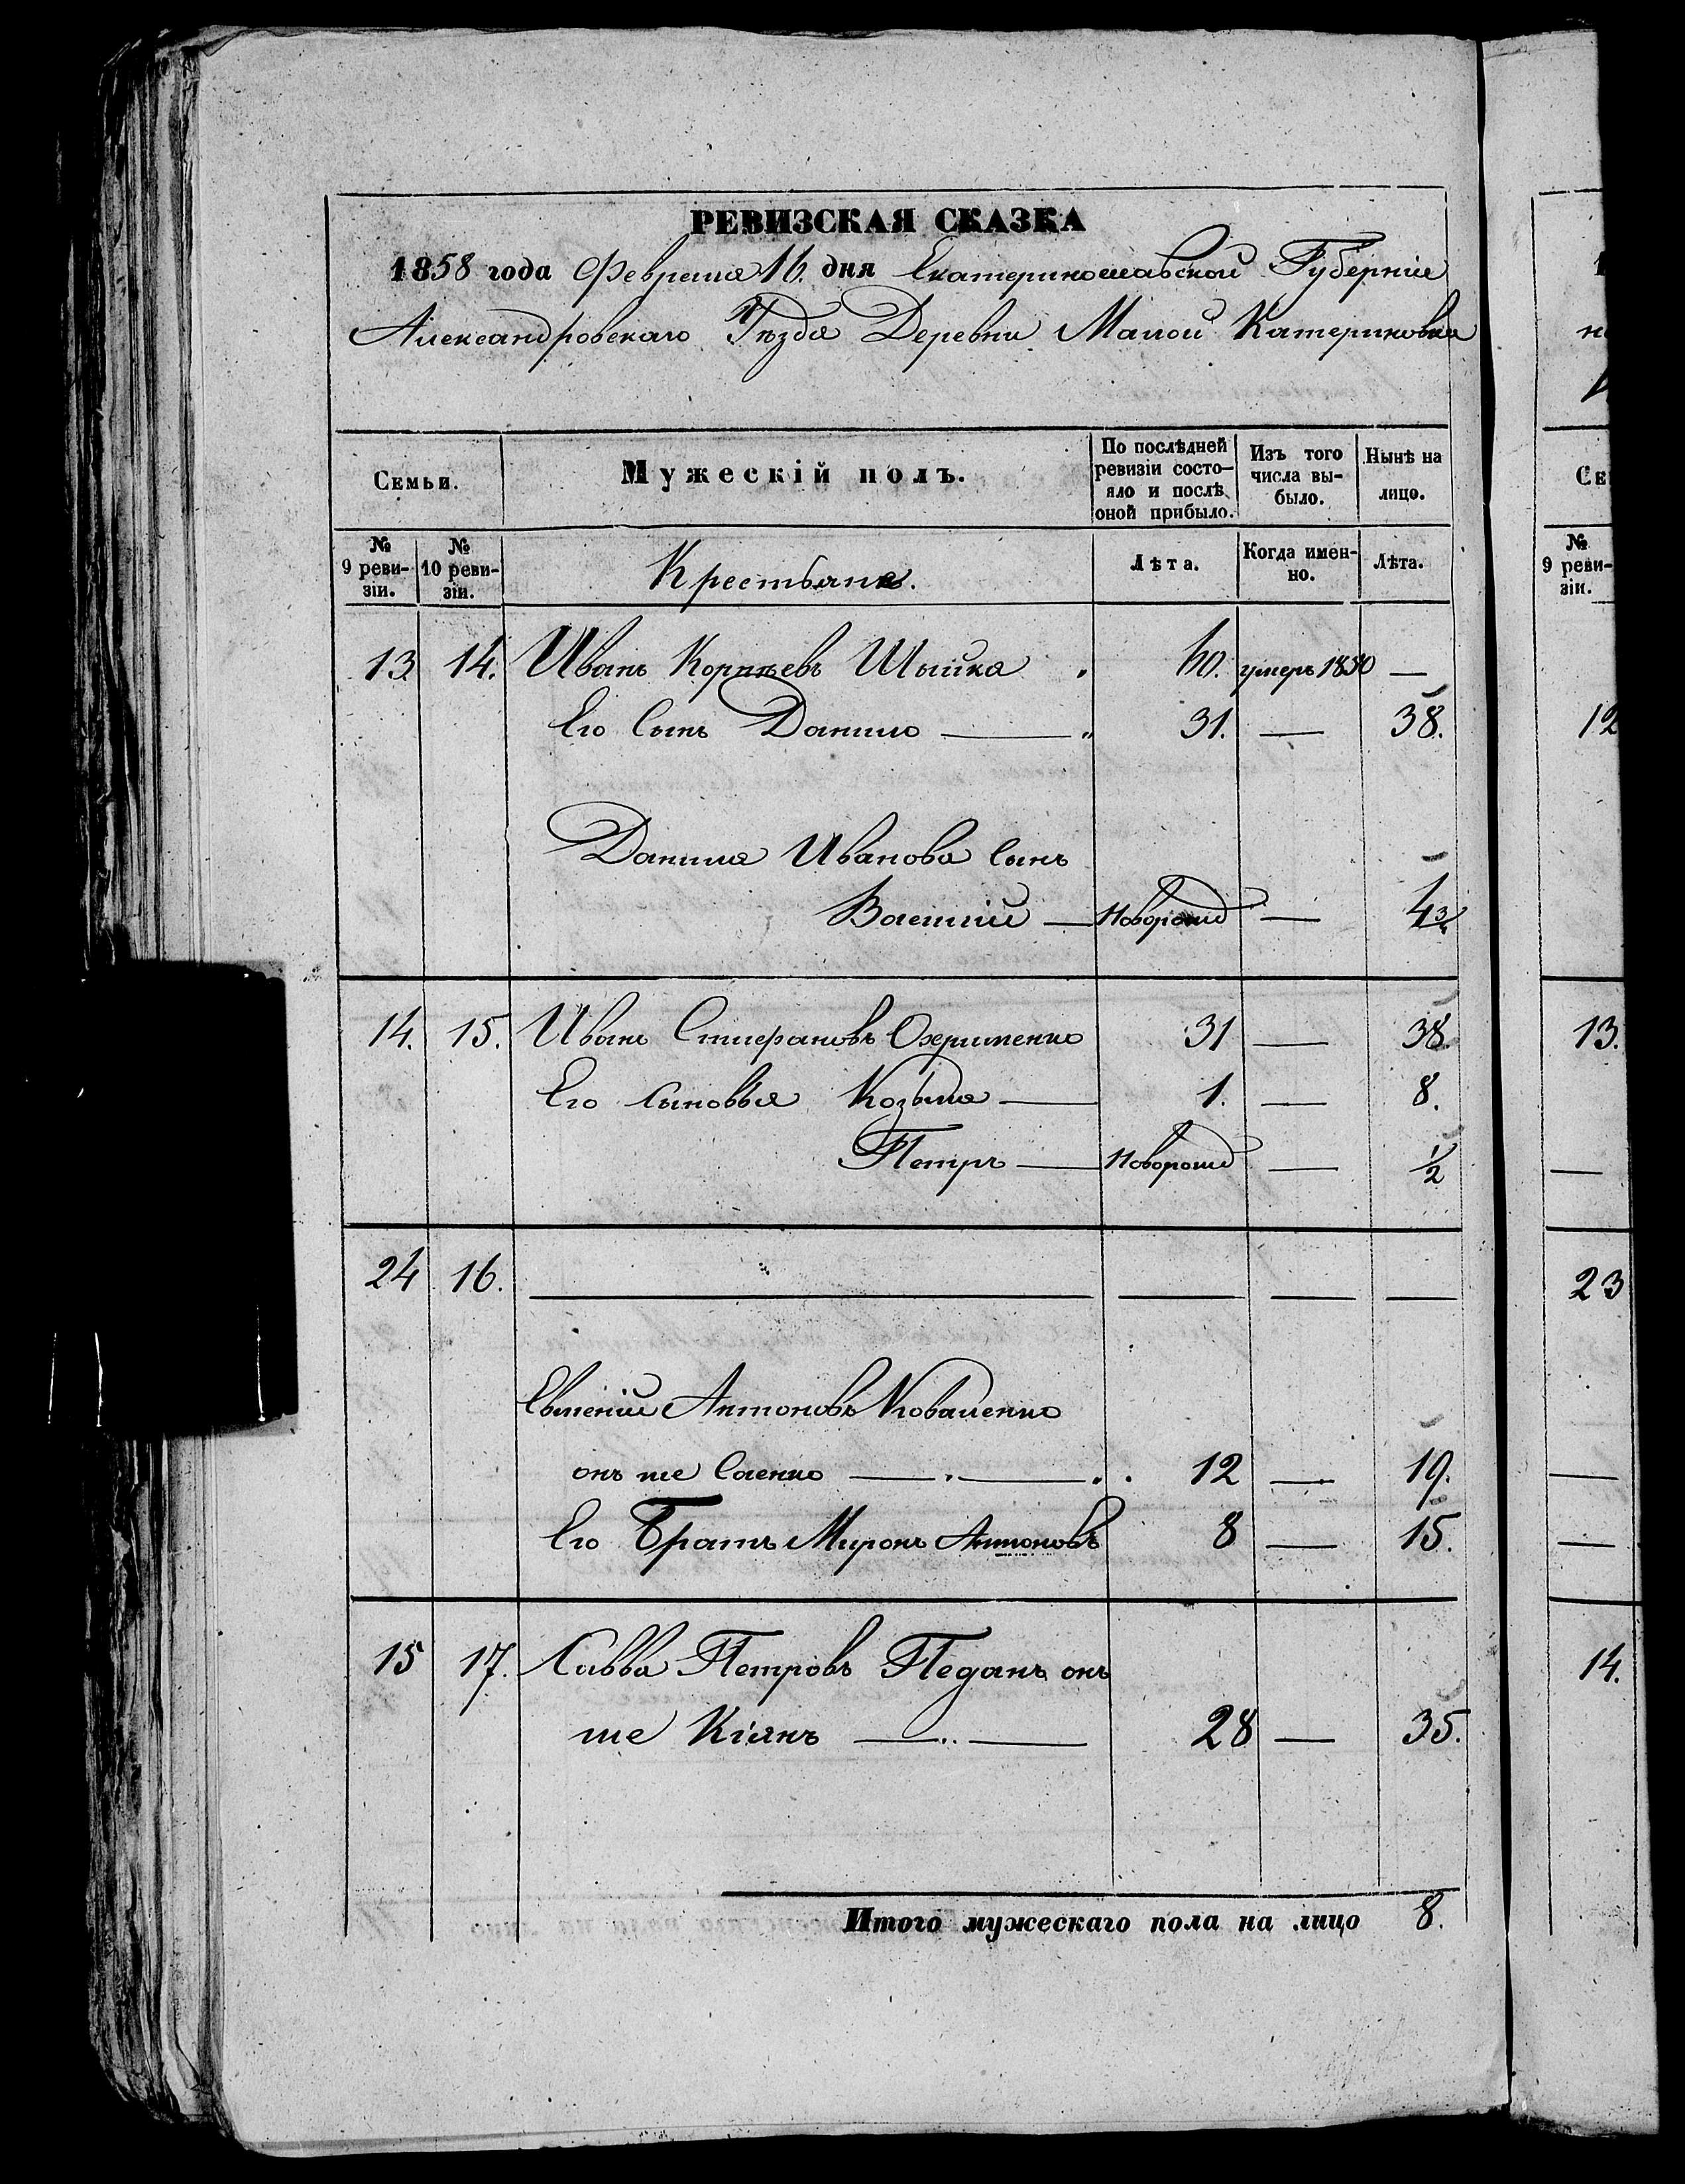 РЕВИЗСКАЯ СКАЗКА
1858 года Февраля 16 дня Екатеринославской Губерніи
Александровскаго Уѣзда Деревни Малой Катериновка
Семьи. Мужескій полъ. По послѣдней ревизіи состояло и послѣ оной прибыло. Изъ того числа выбыло. Нынѣ на лицо.
№ 9 ревизіи. № 10 ревизіи. Крестьяне. Лѣта. Когда именно. Лѣта.
13 14. Иванъ Корнѣевъ Шышка 60. умеръ 1850 —
Его Сынъ Данило — 31. — 38.
Данила Иванова Сынъ
Василій — Новорожд — 4 3/4
14. 15. Иванъ Стефановъ Охрименко 31 — 38.
Его Сыновья Козьма — 1. — 8.
Петръ — Новорожд — 1/2
24 16. — — — —
Евменій Антоновъ Коваленко
онъ же Саенко — 12 — 19.
Его Братъ Миронъ Антоновъ 8 — 15.
15 17. Савва Петровъ Педанъ онъ
же Кіянъ — 28 — 35.
Итого мужескаго пола на лицо 8.
Се
№ 9 ревизіи.
12
13.
—
23
—
—
14.